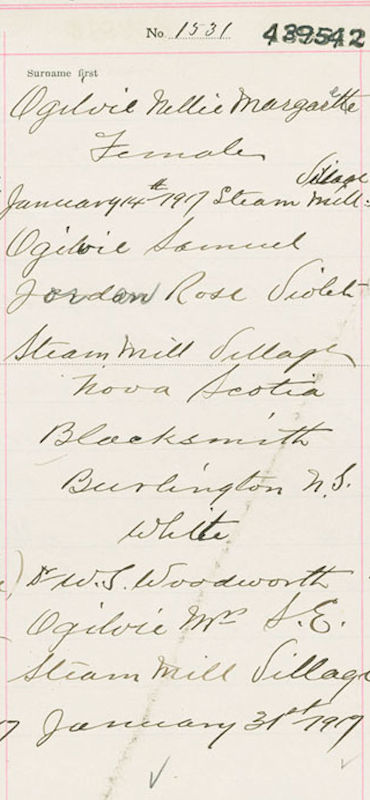 No. 1531 439542
Surname first
Ogilvie Nellie Margarette
Female
Village
January 14th 1917 Steam Mill
Ogilvie Samuel
Jordan Rose Violet
Steam Mill Village
Nova Scotia
Blacksmith
Burlington N.S.
White
Dr W.S. Woodworth
Ogilvie Mrs S.E.
Steam Mill Village
January 31st 1917